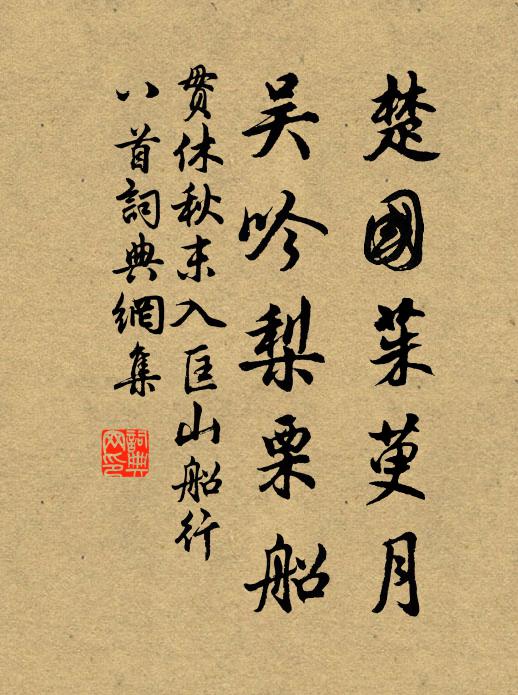 楚國茱萸月
吳吟梨栗船
貫休秋末入匡山船行
八首詞典網集
詞典網印